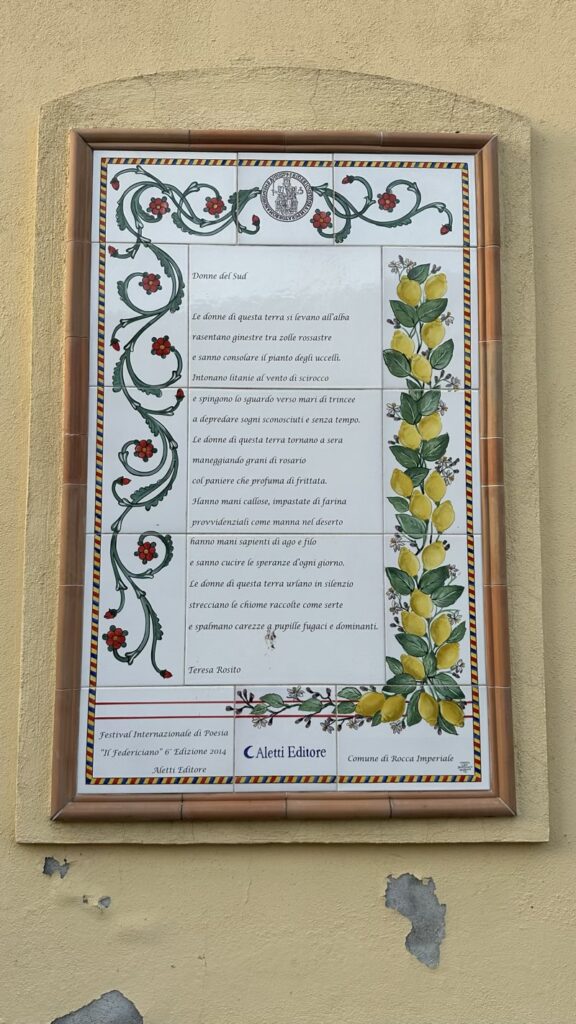 Donne del Sud
Le donne di questa terra si levano all'alba
rasentano ginestre tra zolle rossastre
e sanno consolare il pianto degli uccelli.
Intonano litanie al vento di scirocco
e spingono lo sguardo verso mari di trincee
a depredare sogni sconosciuti e senza tempo.
Le donne di questa terra tornano a sera
maneggiando grani di rosario
col paniere che profuma di frittata.
Hanno mani callose, impastate di farina
provvidenziali come manna nel deserto
hanno mani sapienti di ago e filo
e sanno cucire le speranze d'ogni giorno.
Le donne di questa terra urlano in silenzio
strecciano le chiome raccolte come serte
e spalmano carezze a pupille fugaci e dominanti.
Teresa Rosito
Festival Internazionale di Poesia
"Il Federiciano" 6° Edizione 2014
Aletti Editore
Aletti Editore
Comune di Rocca Imperiale